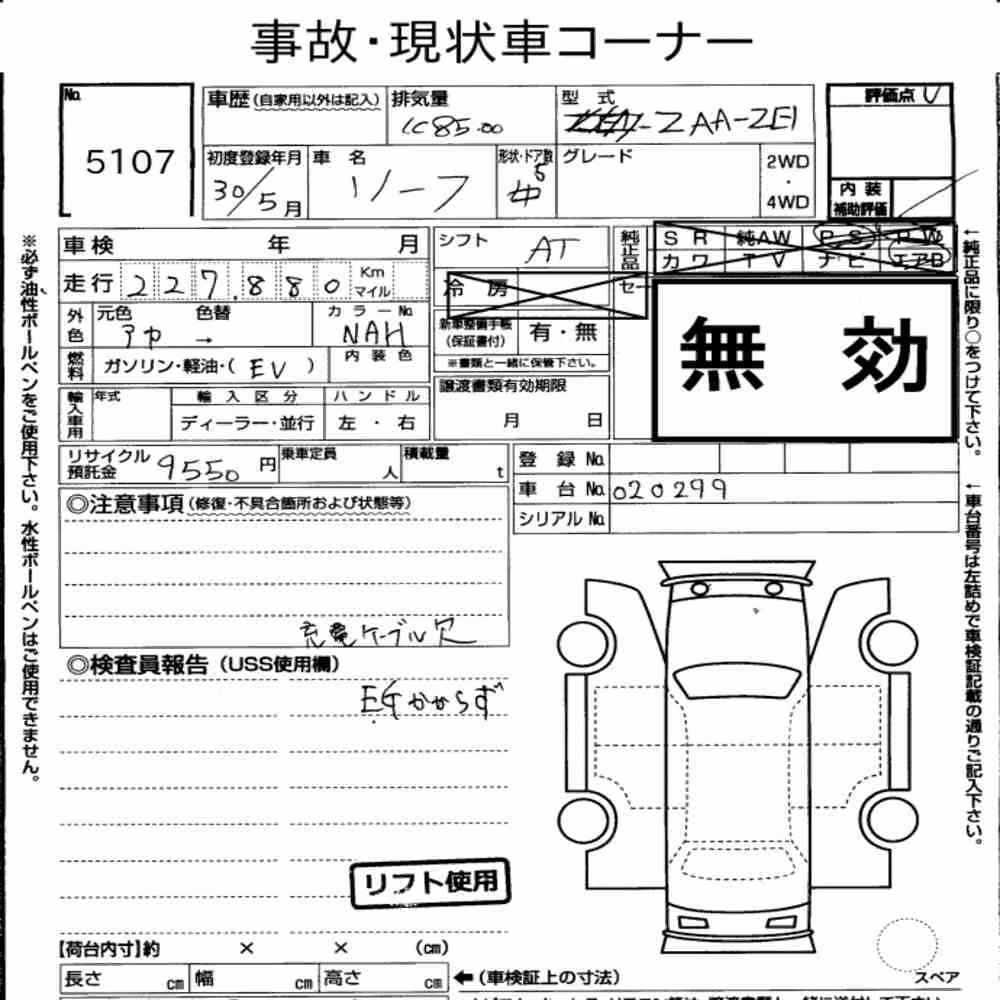 事故・現状車コーナー
No. 5107
車歴(自家用以外は記入)
排気量
型式 ZAA-ZE1
評価点
初度登録年月 30/5月
車名 リーフ
形状・ドア数 5
グレード
2WD・4WD
内装補助評価
車検 年 月
シフト AT
純正品
SR 純AW PS PW
カワ TV ナビ エアB
走行 227,880 Km マイル
冷房
セー
外色 元色 アカ 色替 →
カラーNo. NAH
新車整備手帳(保証書付) 有・無
※書類と一緒に保管下さい。
無効
燃料 ガソリン・軽油・(EV)
内装色
譲渡書類有効期限
月 日
輸入車用 年式 輸入区分 ハンドル
ディーラー・並行 左・右
リサイクル預託金 9550円
乗車定員 人
積載量 t
登録No.
車台No. 020299
シリアルNo.
◎注意事項(修復・不具合箇所および状態等)
充電ケーブル欠
◎検査員報告(USS使用欄)
EGかからず
リフト使用
【荷台内寸】約 × × (cm)
長さ cm 幅 cm 高さ cm
←(車検証上の寸法)
スペア
※必ず油性ボールペンをご使用下さい。水性ボールペンはご使用できません。
←純正品に限り○をつけて下さい。
←車台番号は左詰めで車検証記載の通りご記入下さい。